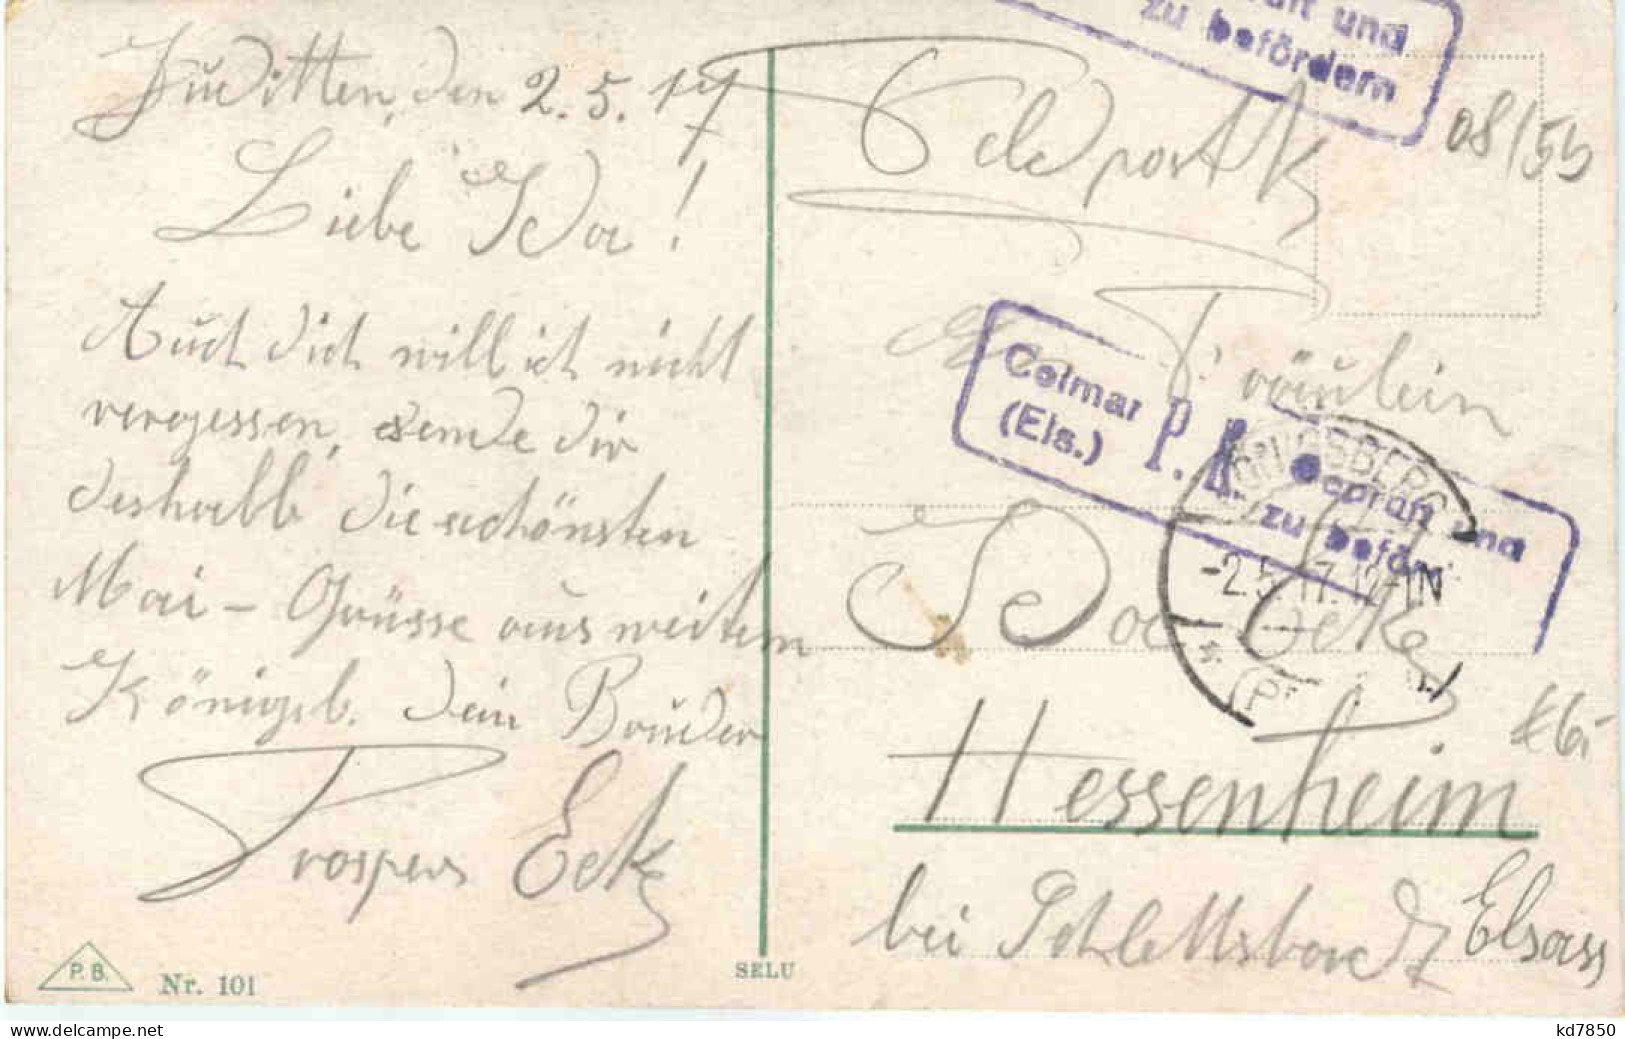 Juditten, den 2.5.17
Liebe Ida!
Auch dich will ich nicht
vergessen, sende dir
deshalb die schönsten
Mai-Grüsse aus weitem
Königsb. Dein Bruder
Prosper Eck
P.B.
Nr. 101
SELU
und
zu befördern
08/55
Feldpostk
Fräulein
Colmar
(Els.)
P. K.
Geprüft und
zu beför
KÖNIGSBERG
-2.5.17.12-1N
* (Pr
Ida Eck
Hessenheim
bei Schlettstadt Elsass
kd7850
www.delcampe.net